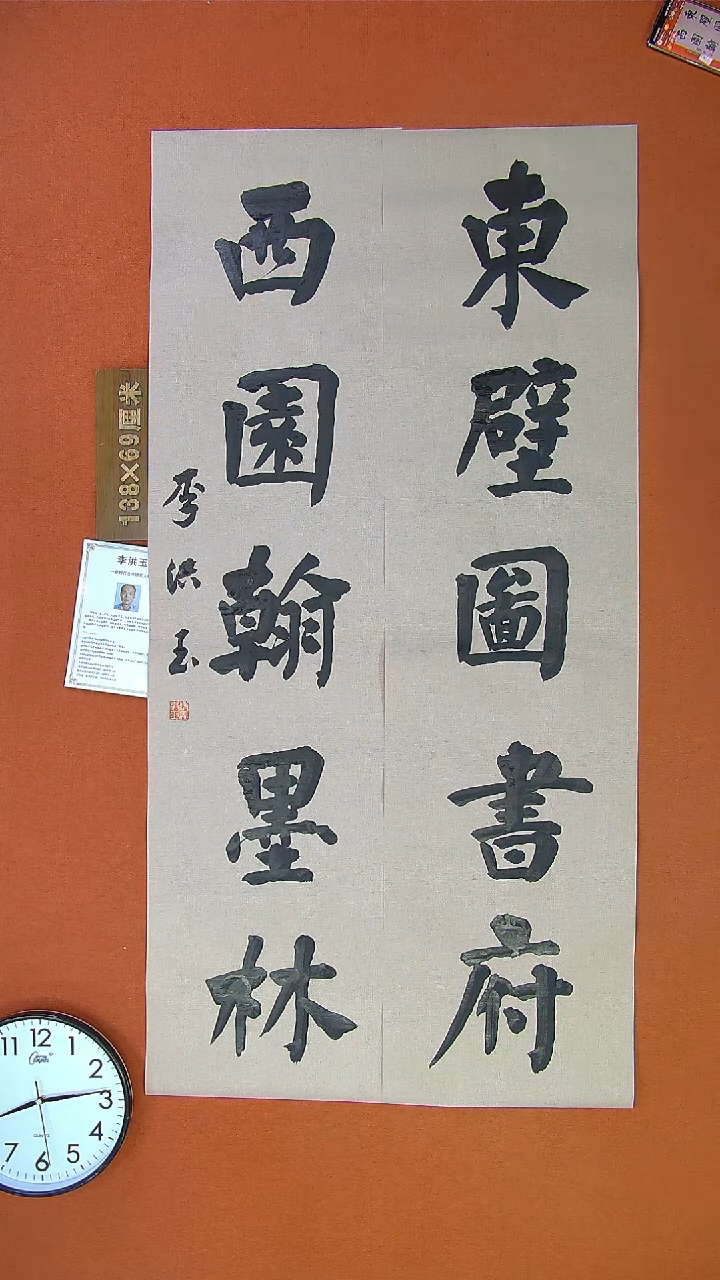 東壁圖書府
西園翰墨林
李洪玉
138×69厘米
李洪玉
11 12 1
2
3
4
5
6
7
QUARTZ